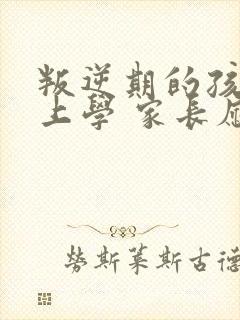 叛逆期的孩
上學 家長應
勞斯萊斯古德